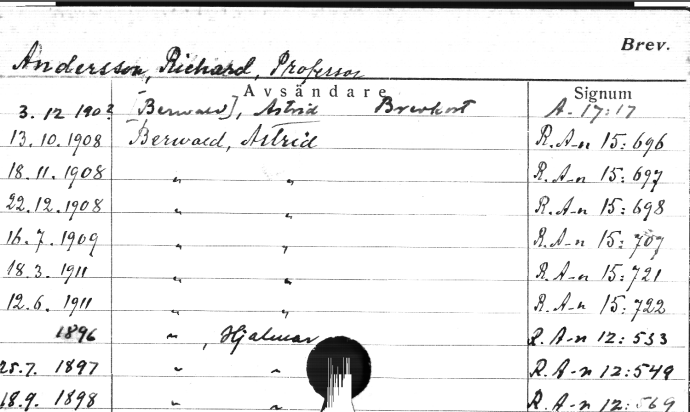 Brev.
Andersson, Richard, Professor
Avsändare Signum
3.12 190? [Berwald], Astrid Brevkort A-17:17
13.10.1908 Berwald, Astrid R.A-n 15:696
18.11.1908 " " R.A-n 15:697
22.12.1908 " " R.A-n 15:698
16.7.1909 " " R.A-n 15:707
18.3.1911 " " R.A-n 15:721
12.6.1911 " " R.A-n 15:722
1896 " , Hjalmar R.A-n 12:533
25.7.1897 " " R.A-n 12:549
18.9.1898 " " R.A-n 12:569